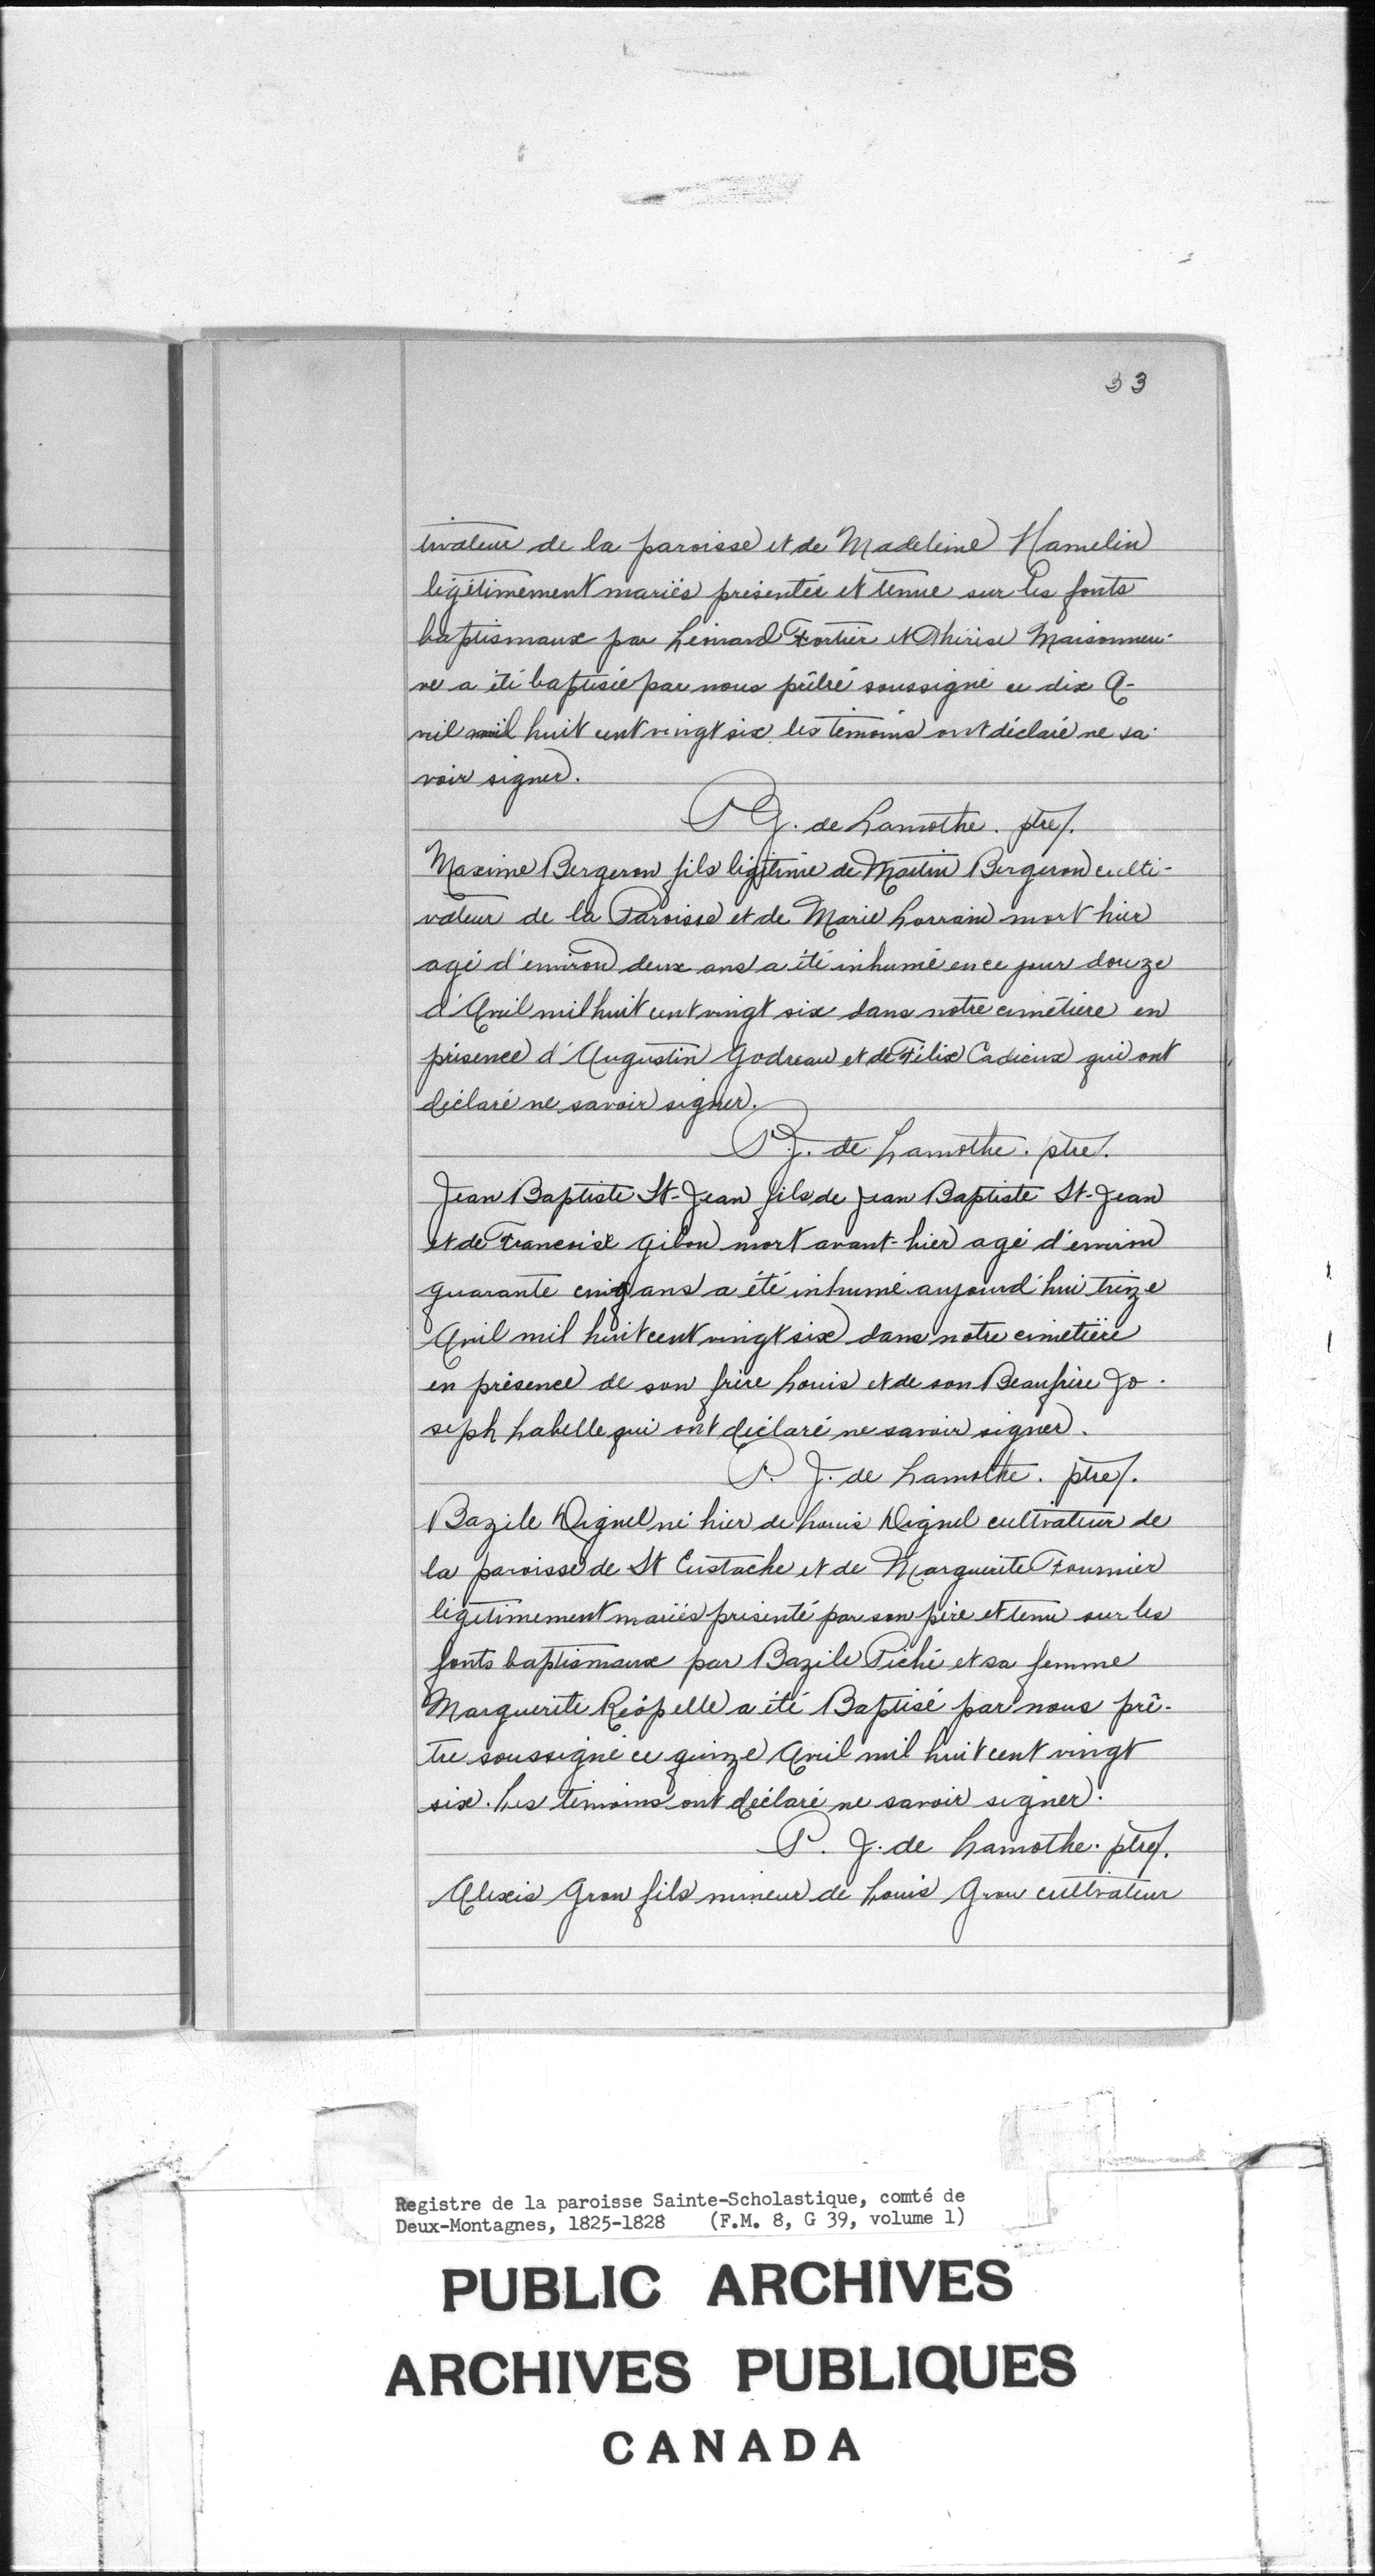 33
tivateur de la paroisse et de Madeleine Hamelin
légitimement mariés présentée et tenue sur les fonts
baptismaux par Léonard Fortier et Thérèse Maisonneu-
ve a été baptisée par nous prêtre soussigné ce dix A-
vril mil huit cent vingt six les témoins ont déclaré ne sa-
voir signer.
P J. de Lamothe. ptre/.
Maxime Bergeron fils légitime de Martin Bergeron culti-
vateur de la Paroisse et de Marie Lorrain mort hier
agé d'environ deux ans a été inhumé en ce jour douze
d'Avril mil huit cent vingt six dans notre cimétiere en
présence d'Augustin Godreau et de Félix Cadieux qui ont
déclaré ne savoir signer.
P J. de Lamothe. ptre/.
Jean Baptiste St-Jean fils de Jean Baptiste St-Jean
et de Francoise Gibou mort avant-hier agé d'environ
quarante cinq ans a été inhumé aujourd'hui treize
Avril mil huit cent vingt six dans notre cimetière
en présence de son frère Louis et de son Beaufrère Jo-
seph Labelle qui ont déclaré ne savoir signer.
P. J. de Lamothe. ptre/.
Bazile Dignel né hier de Louis Dignel cultivateur de
la paroisse de St Eustache et de Marguerite Fournier
légitimement mariés présenté par son père et tenu sur les
fonts baptismaux par Bazile Piché et sa femme
Marguerite Réopelle a été Baptisé par nous prê-
tre soussigné ce quinze Avril mil huit cent vingt
six. Les témoins ont déclaré ne savoir signer.
P. J. de Lamothe. ptre/.
Alexis Grou fils mineur de Louis Grou cultivateur
Registre de la paroisse Sainte-Scholastique, comté de
Deux-Montagnes, 1825-1828 (F.M. 8, G 39, volume 1)
PUBLIC ARCHIVES
ARCHIVES PUBLIQUES
CANADA